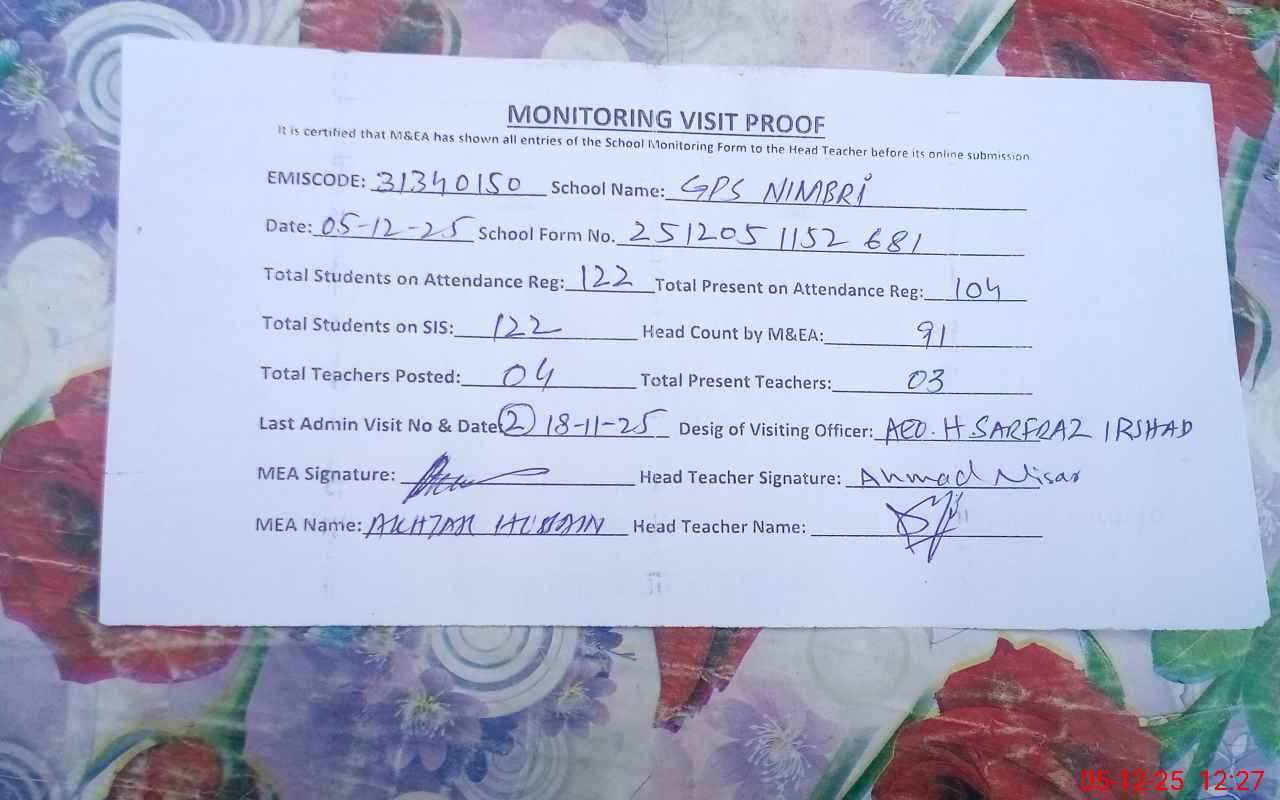 MONITORING VISIT PROOF
It is certified that M&EA has shown all entries of the School Monitoring Form to the Head Teacher before its online submission
EMISCODE: 31340150 School Name: GPS NIMBRI
Date: 05-12-25 School Form No. 2512051152681
Total Students on Attendance Reg: 122 Total Present on Attendance Reg: 104
Total Students on SIS: 122 Head Count by M&EA: 91
Total Teachers Posted: 04 Total Present Teachers: 03
Last Admin Visit No & Date: 2 18-11-25 Desig of Visiting Officer: AEO. H.SARFRAZ IRSHAD
MEA Signature: Head Teacher Signature: Ahmad Nisar
MEA Name: AKHTAR HUSSAIN Head Teacher Name:
05-12-25 12:27